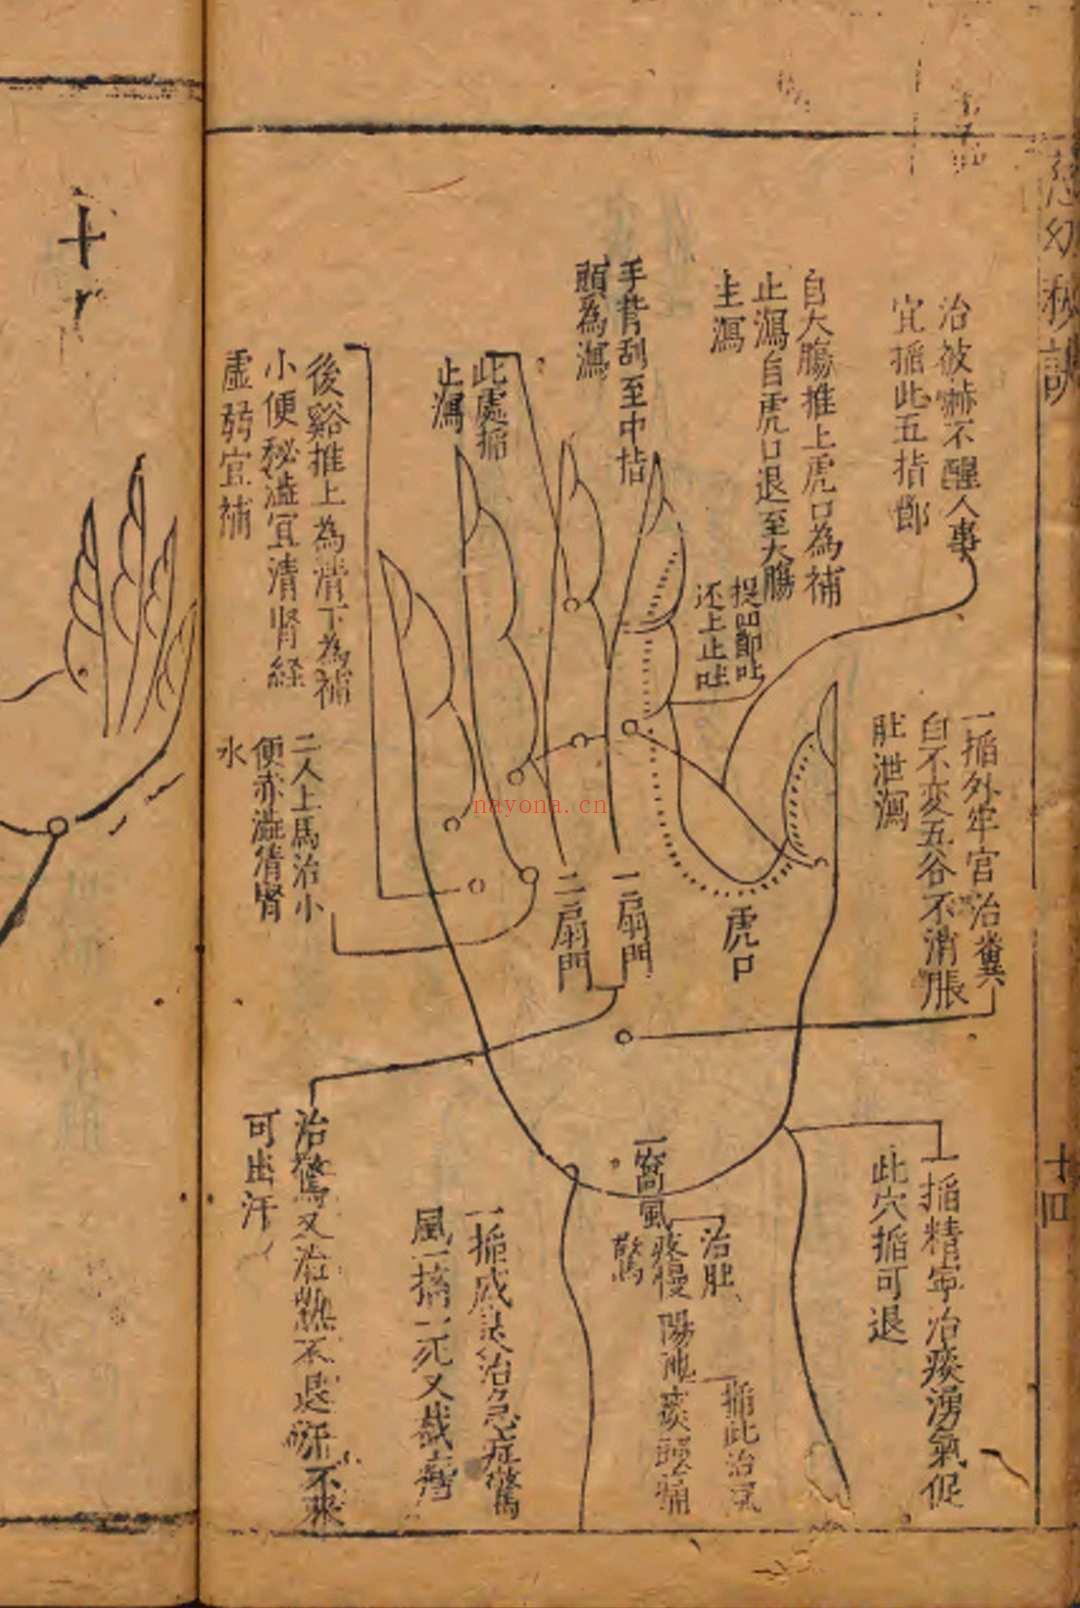 幼科
治被嚇不醒人事
宜掐此五指節
自大腸推上虎口為補
止瀉自虎口退至大腸
主瀉
手背刮至中指
頭為瀉
此處掐
止瀉
後谿推上為清下為補
小便秘澁宜清腎経
虛弱宜補
还上止吐
二人上馬治小
便赤澁清腎
水
一掐外牢宮治糞
白不変五谷不消脹
肚泄瀉
虎口
一扇門
二扇門
治驚又治熱不退汗不来
可出汗
一掐威灵治急症驚
風一掐一死又截
一窩風
治肚
疼慢
驚
陽池痰頭痛
一掐此治風
一掐精寧治痰湧氣促
此穴掐可退
十四
十
nayona.cn